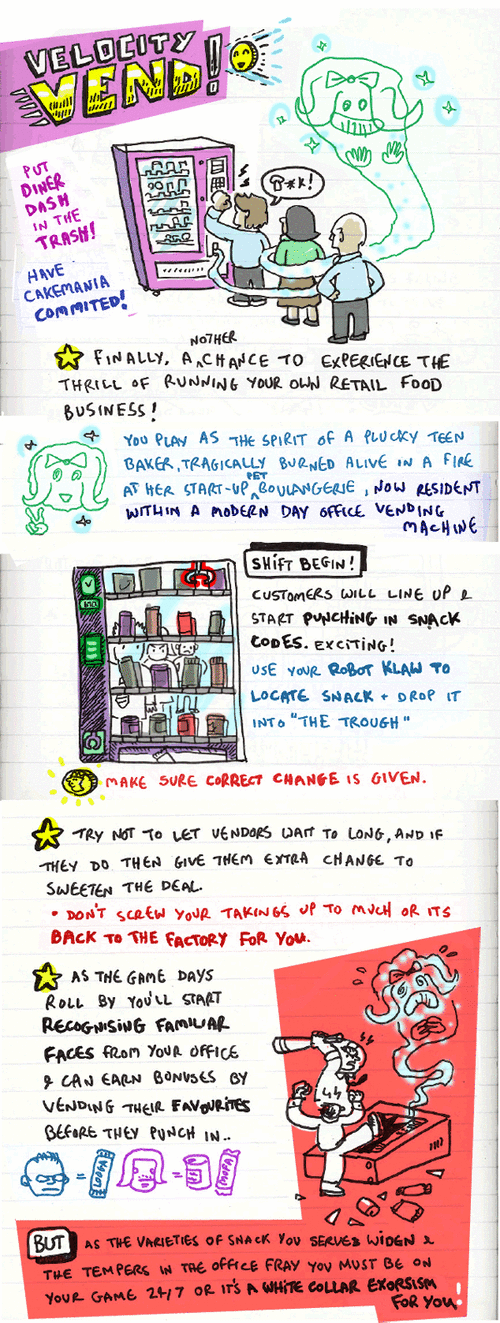 VELOCITY
VEND!
PUT
DINER
DASH
IN THE
TRASH!
HAVE
CAKEMANIA
COMMITED!
FINALLY, ANOTHER CHANCE TO EXPERIENCE THE
THRILL OF RUNNING YOUR OWN RETAIL FOOD
BUSINESS!
YOU PLAY AS THE SPIRIT OF A PLUCKY TEEN
BAKER, TRAGICALLY BURNED ALIVE IN A FIRE
AT HER START-UP PET BOULANGERIE, NOW RESIDENT
WITHIN A MODERN DAY OFFICE VENDING
MACHINE
SHIFT BEGIN!
CUSTOMERS WILL LINE UP &
START PUNCHING IN SNACK
CODES. EXCITING!
USE YOUR ROBOT KLAW TO
LOCATE SNACK + DROP IT
INTO "THE TROUGH"
MAKE SURE CORRECT CHANGE IS GIVEN.
TRY NOT TO LET VENDORS WAIT TO LONG, AND IF
THEY DO THEN GIVE THEM EXTRA CHANGE TO
SWEETEN THE DEAL.
• DON'T SCREW YOUR TAKINGS UP TO MUCH OR ITS
BACK TO THE FACTORY FOR YOU.
AS THE GAME DAYS
ROLL BY YOU'LL START
RECOGNISING FAMILIAR
FACES FROM YOUR OFFICE
& CAN EARN BONUSES BY
VENDING THEIR FAVOURITES
BEFORE THEY PUNCH IN..
BUT AS THE VARIETIES OF SNACK YOU SERVES WIDEN &
THE TEMPERS IN THE OFFICE FRAY YOU MUST BE ON
YOUR GAME 24/7 OR IT'S A WHITE COLLAR EXORSISM
FOR YOU!